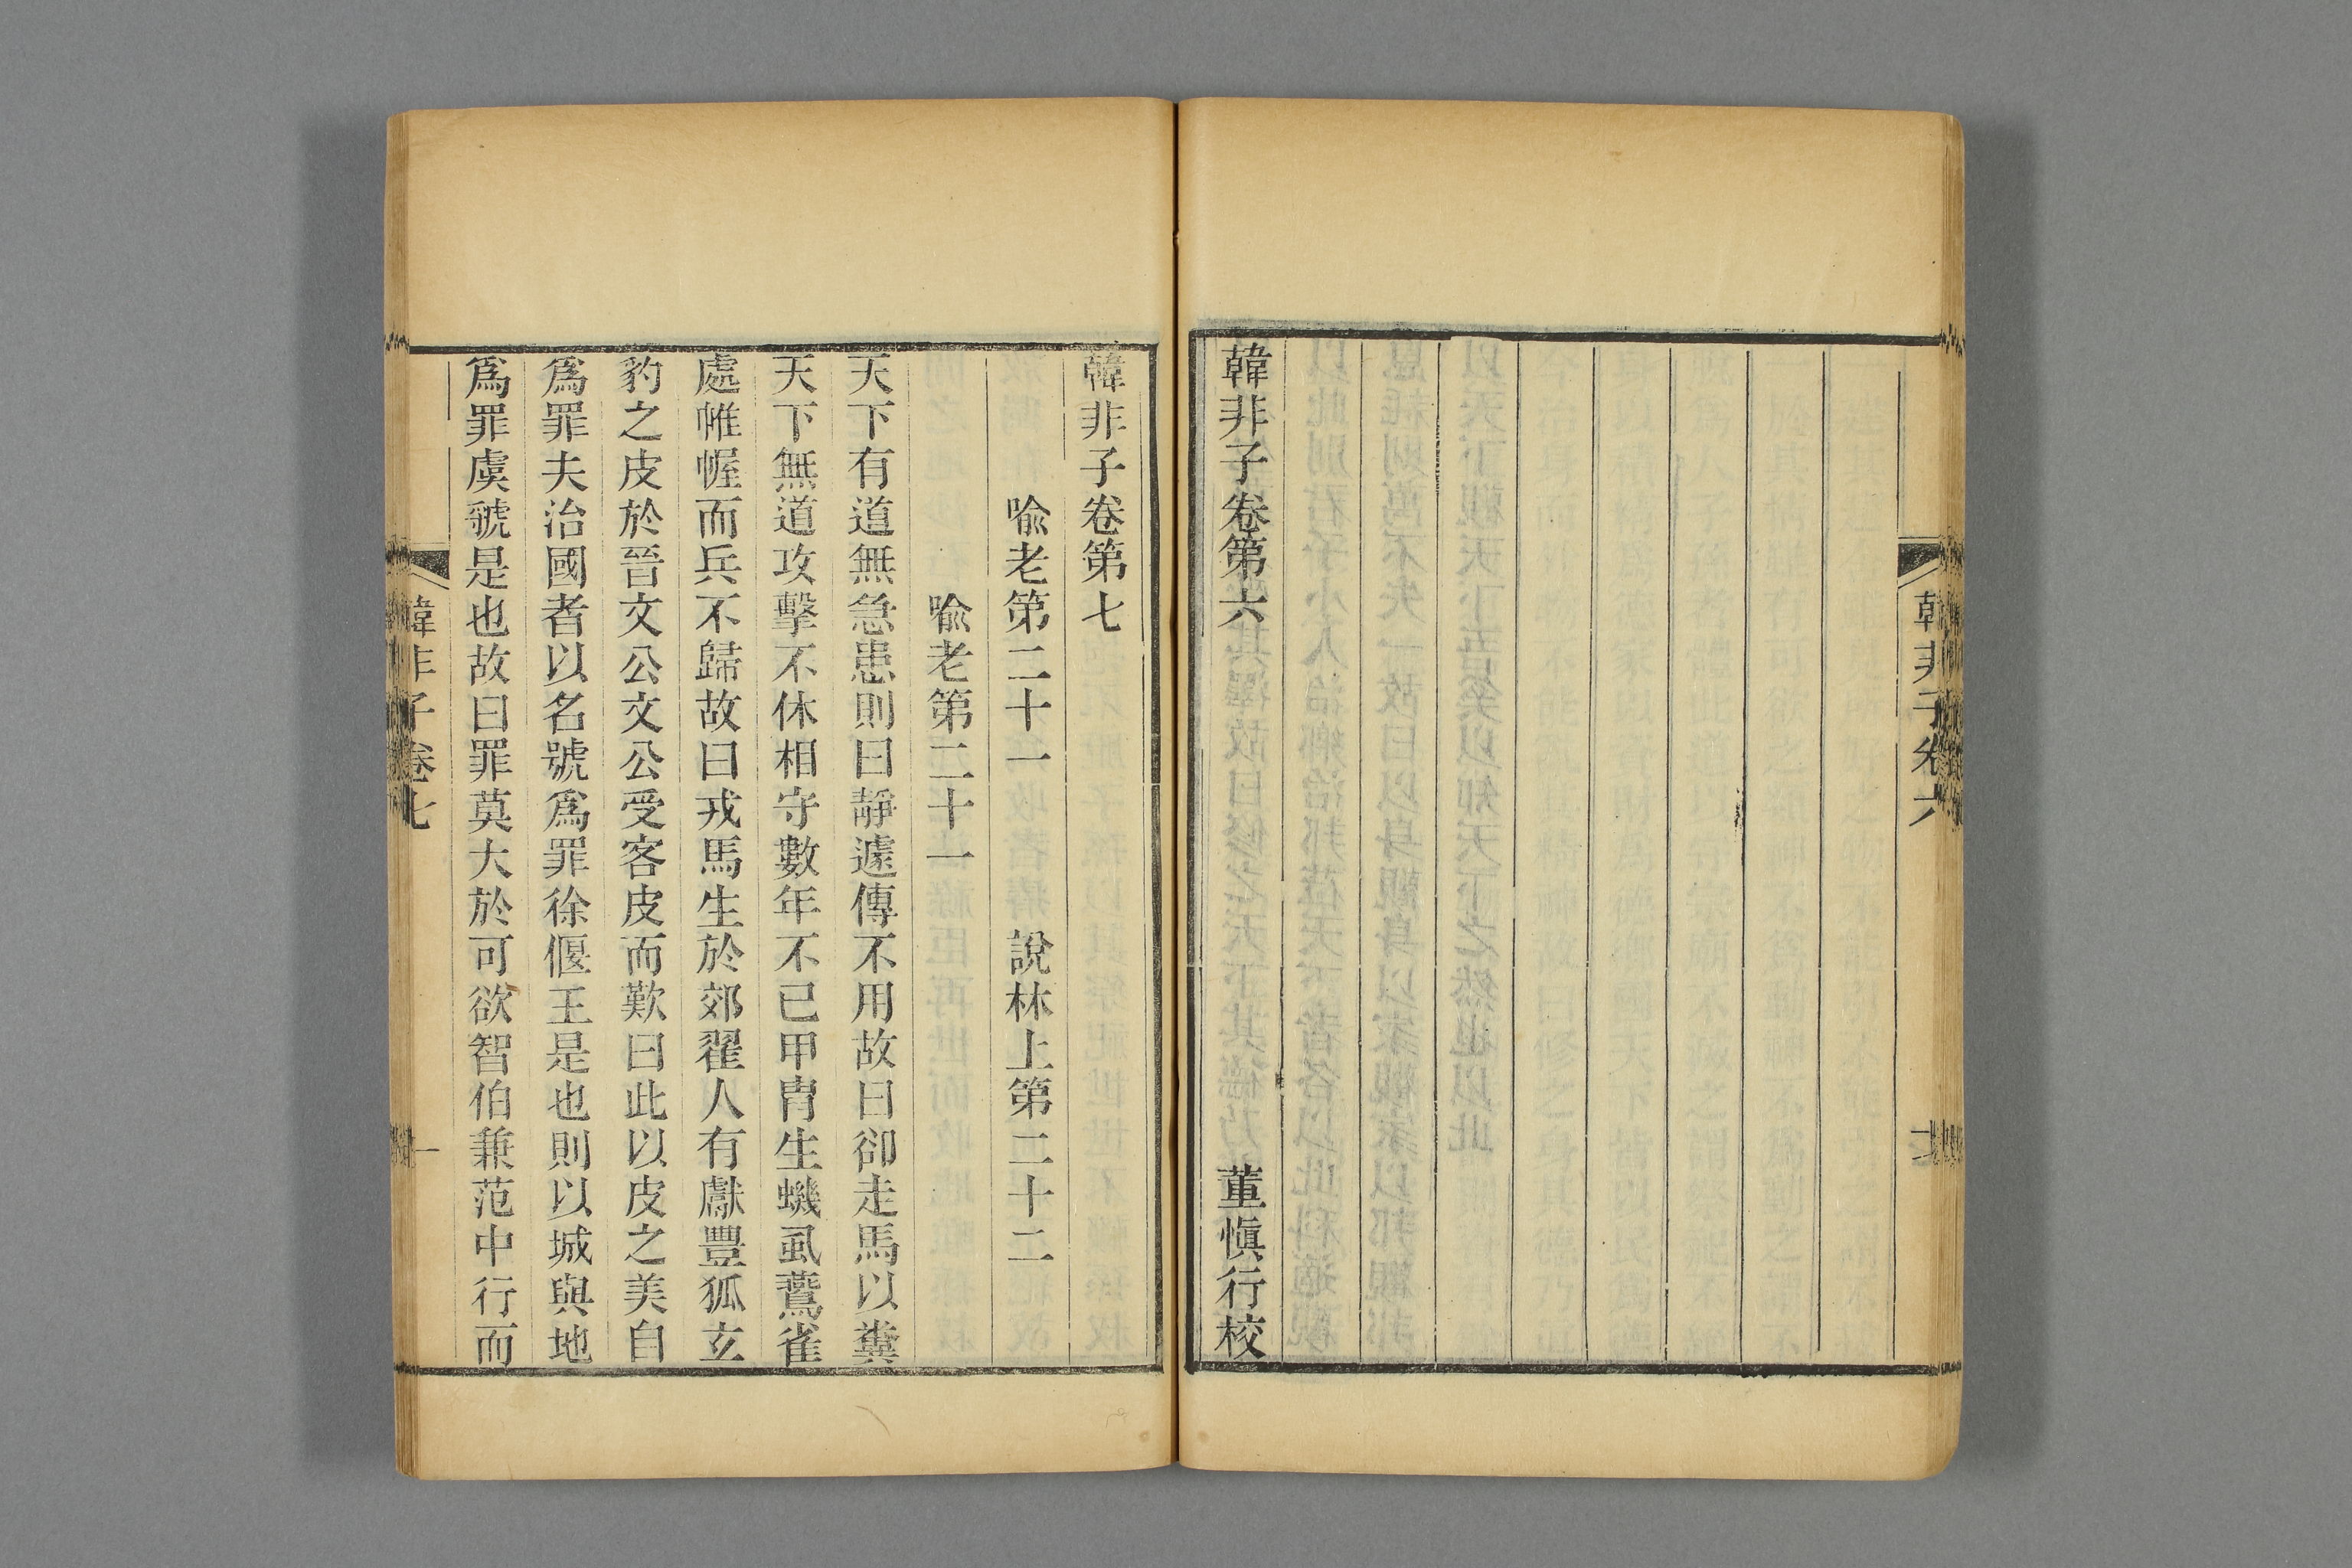 韓非子卷六
韓非子卷第六 董慎行校
韓非子卷第七
喻老第二十一 說林上第二十二
喻老第二十一
天下有道無急患則曰靜遽傳不用故曰卻走馬以糞
天下無道攻擊不休相守數年不已甲胄生蟣虱鷰雀
處帷幄而兵不歸故曰戎馬生於郊翟人有獻豐狐玄
豹之皮於晉文公文公受客皮而歎曰此以皮之美自
爲罪夫治國者以名號爲罪徐偃王是也則以城與地
爲罪虞虢是也故曰罪莫大於可欲智伯兼范中行而
韓非子卷七 一